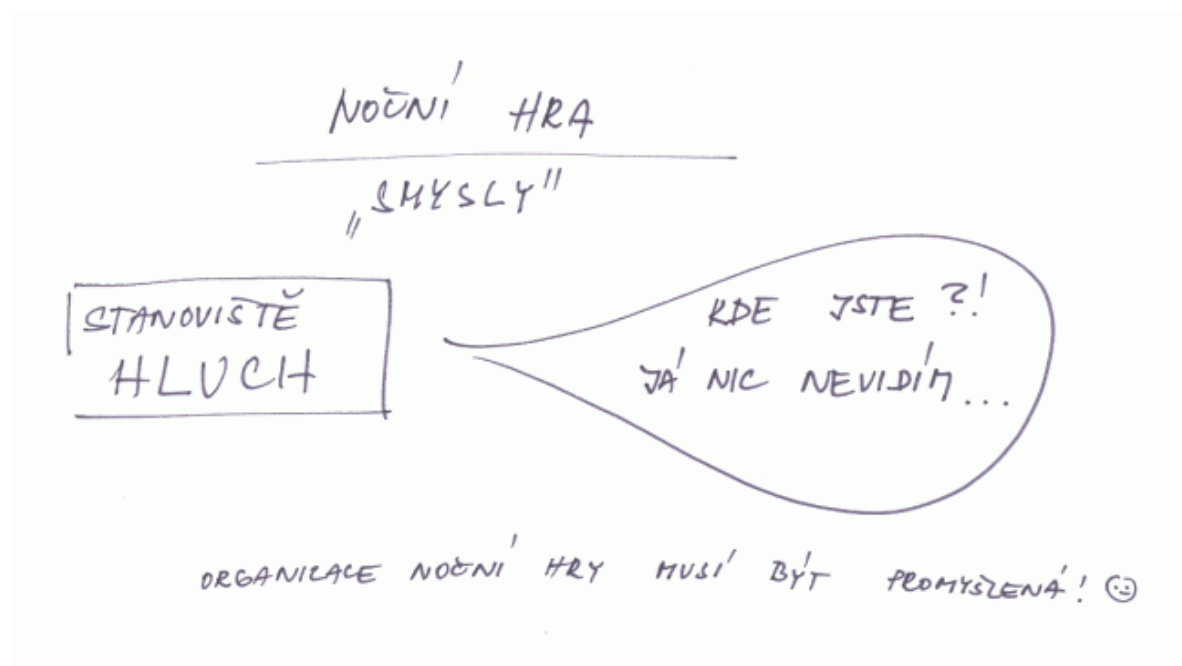 NOČNÍ HRA
„SMYSLY"
STANOVIŠTĚ
HLUCH
KDE JSTE ?!
JÁ NIC NEVIDÍM...
ORGANIZACE NOČNÍ HRY MUSÍ BÝT PROMYŠLENÁ! ☺